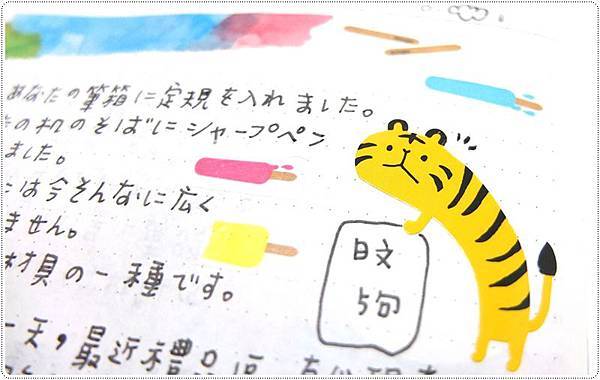 あなたの筆箱に定規を入れました。
の机のそばにシャープペン
ました。
は今そんなに広く
ません。
具の一種です。
日文
5句
一天，最近禮品